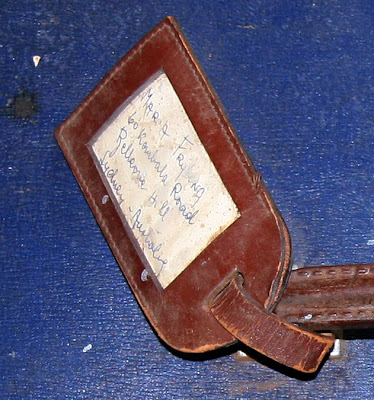 MARIA
60 Kambala Road
Bellevue Hill
Sydney - Australia